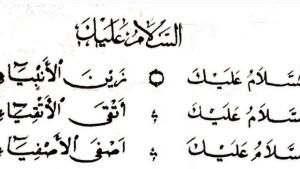 السَّلَامُ عَلَيْكَ
السَّلَامُ عَلَيْكَ زَيْنَ الْأَنْبِيَآءِ
السَّلَامُ عَلَيْكَ أَتْقَى الْأَتْقِيَآءِ
السَّلَامُ عَلَيْكَ أَصْفَى الْأَصْفِيَآءِ